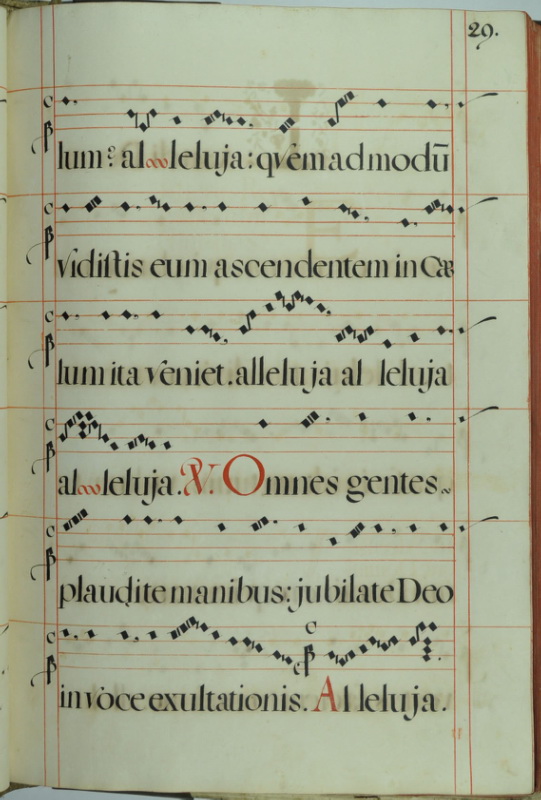 29.
lum? alleluja: qvemadmodū
vidistis eum ascendentem in Cæ
lum ita veniet. alleluja al leluja
alleluja. ℣. Omnes gentes
plaudite manibus: jubilate Deo
in voce exultationis. Al leluja.